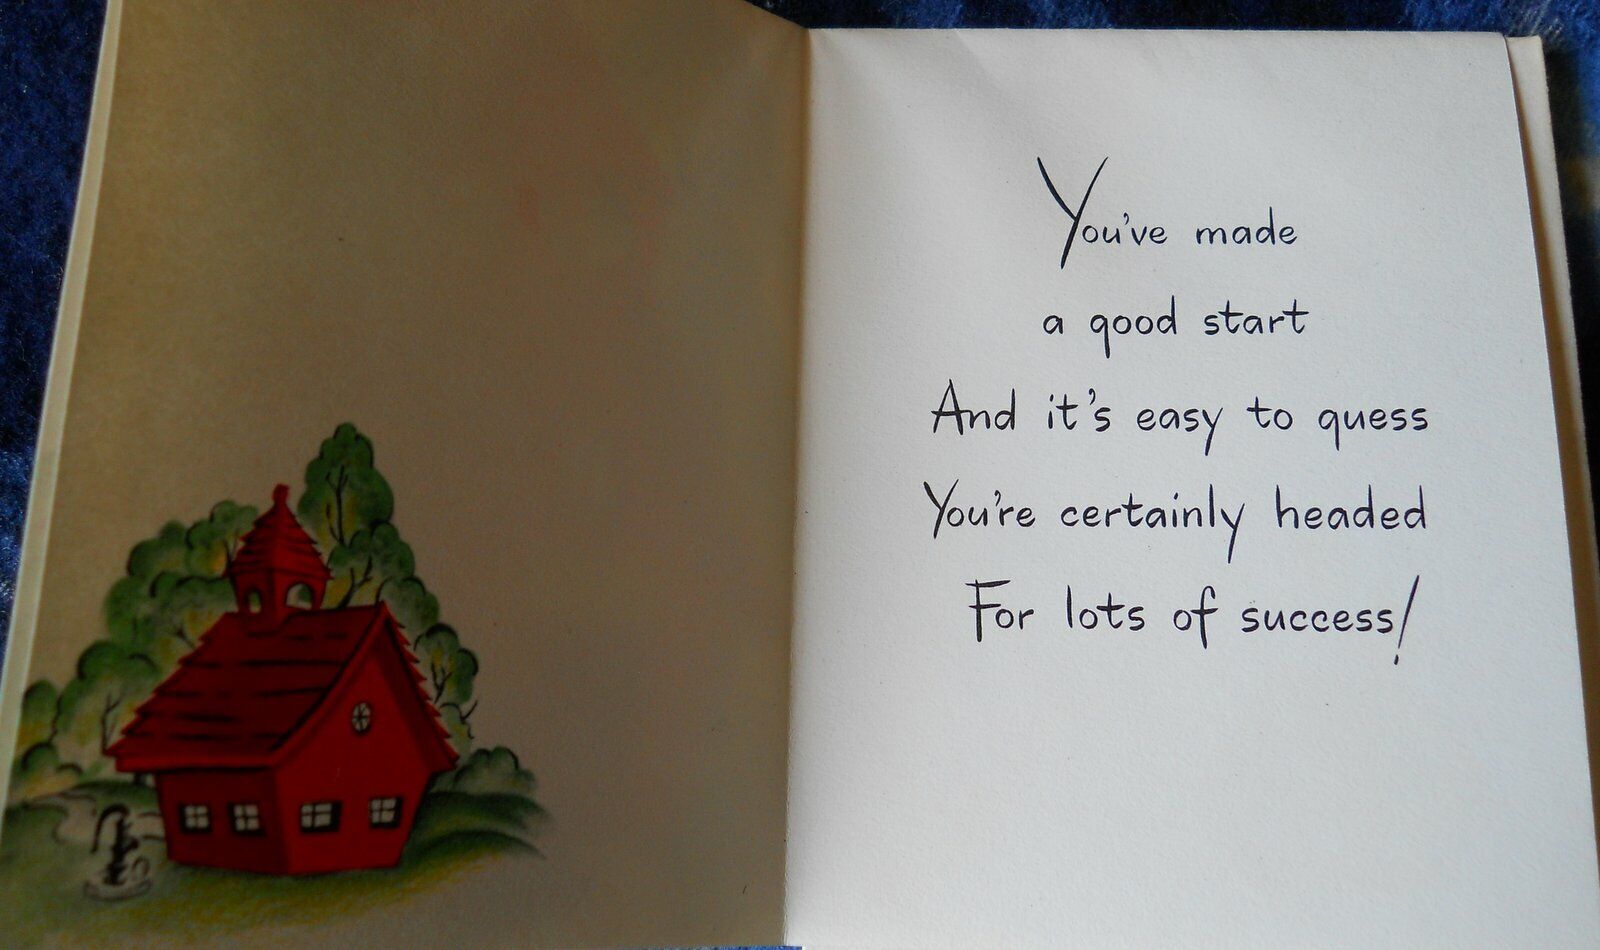 You've made
a good start
And it's easy to guess
You're certainly headed
For lots of success!